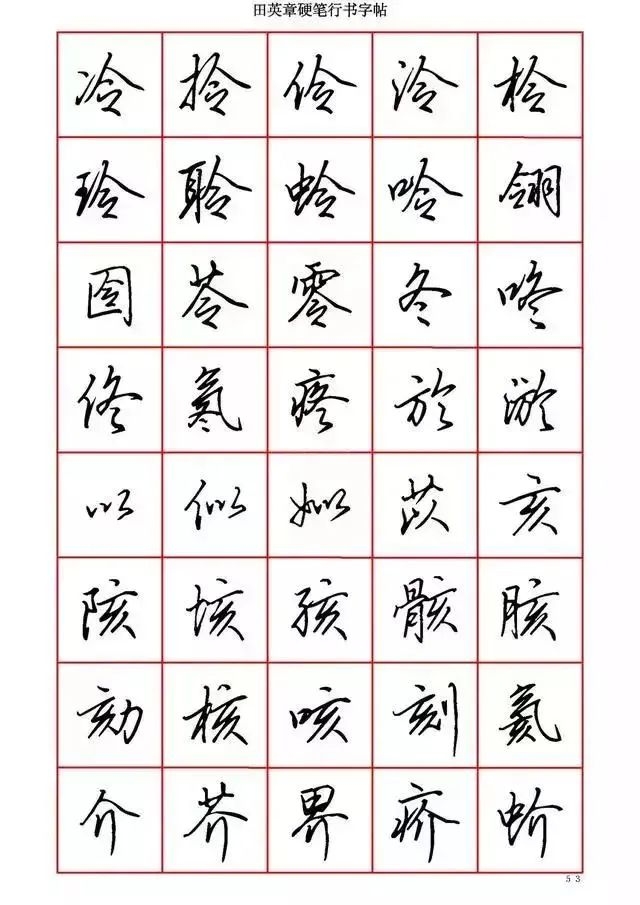 田英章硬笔行书字帖
冷拎伶泠柃
玲聆蛉呤翎
囹苓零冬咚
佟氡疼於淤
以似姒苡亥
陔垓孩骸胲
劾核咳刻氦
介芥界疥蚧
53